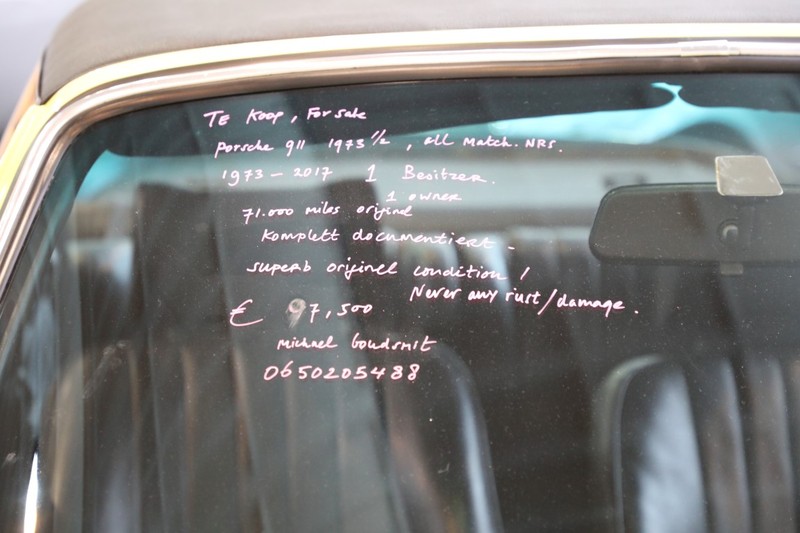 TE Koop, For sale
Porsche 911 1973 1/2, all Match. NRS.
1973 - 2017 1 Besitzer.
1 owner
71.000 miles original
Komplett documentiert -
superb original condition !
Never any rust/damage.
€ 97,500
Michael Goudsmit
0650205488